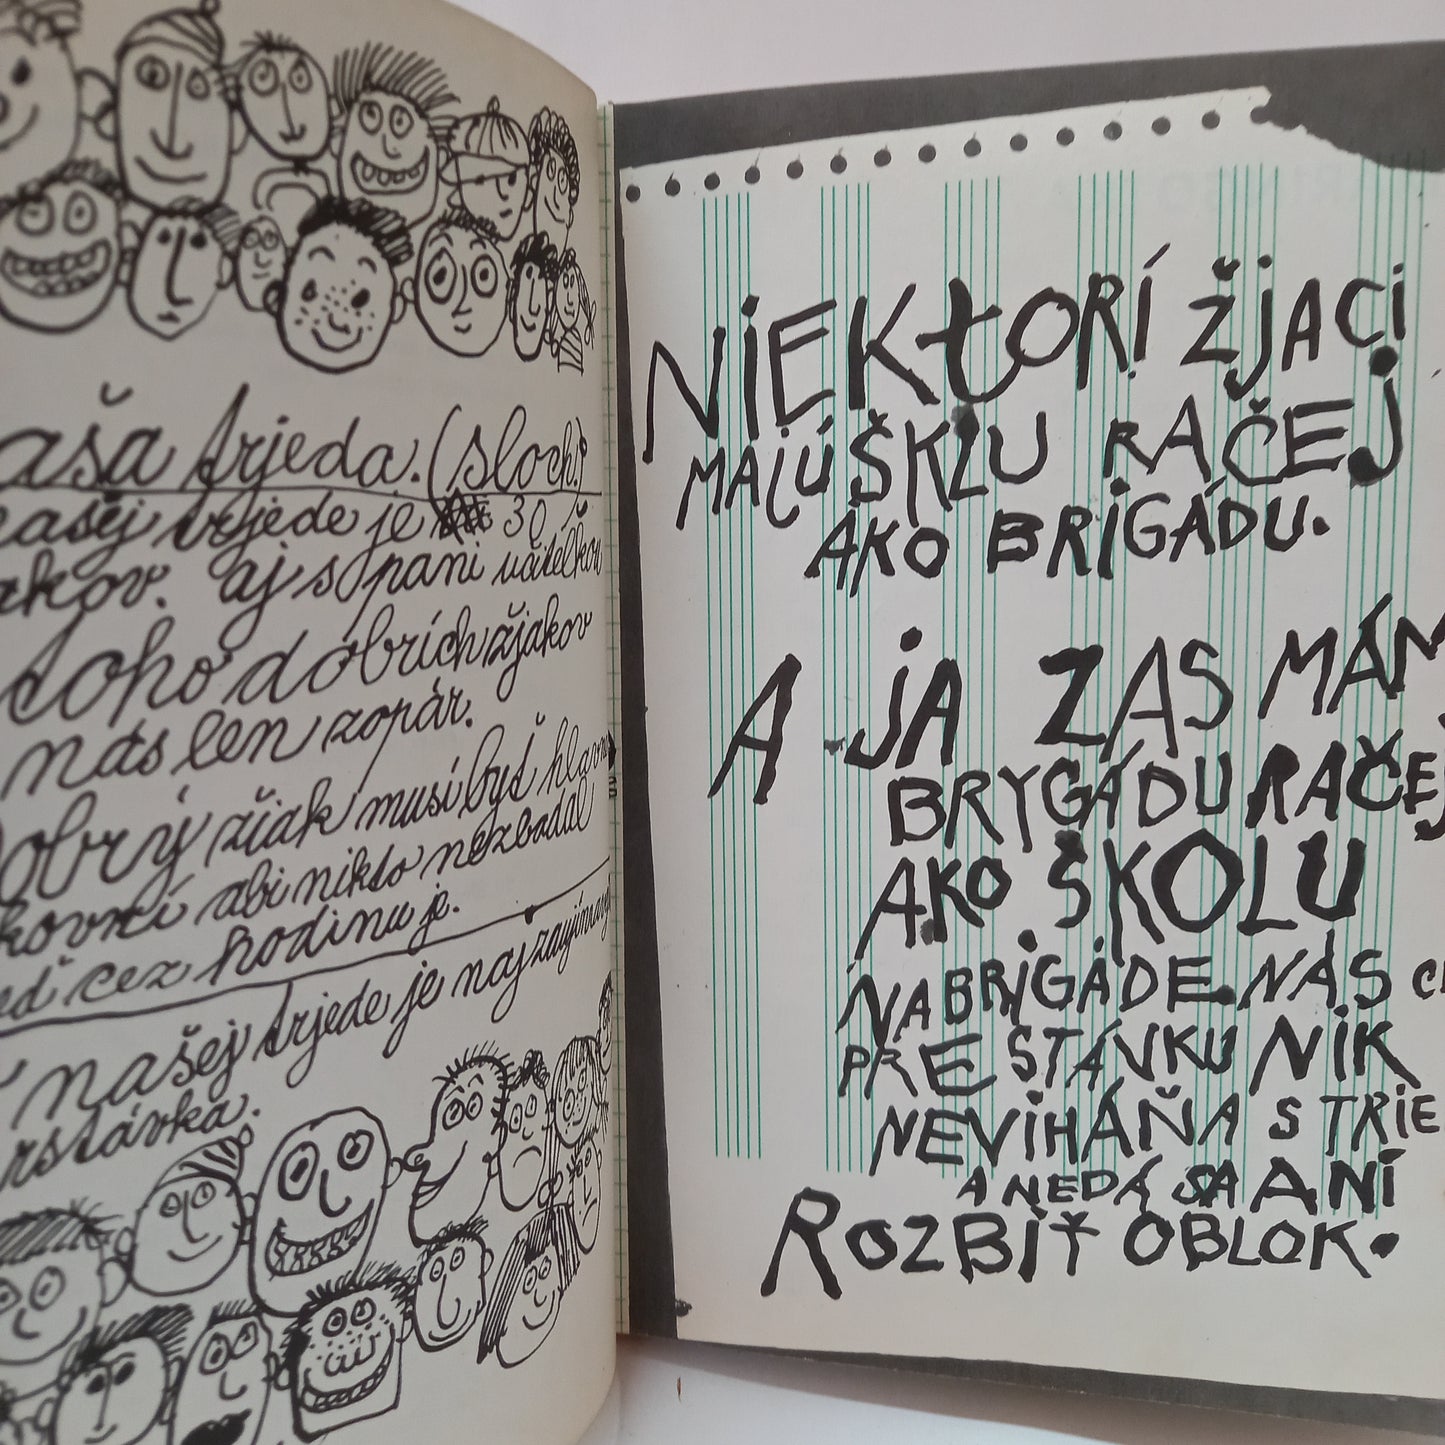 aša trjeda. (sloch)
našej trjede je 30 ž
akov. aj s pani učitelkov
toho dobrích žjakov
nás len zopár.
Dobrý žiak musí byť hlavne
kovní abi nikto nezbadal
eď cez hodinu je.
V našej trjede je najzaujímavej
rstávka.
NiEKtORÍ ŽjACi
MAJÚ ŠKOLU RAČEJ
AKO BRiGÁDU.
A JA ZAS MÁM
BRYGÁDU RAČEJ
AKO ŠKOLU
NA BRiGÁDE NÁS C
PRESTÁVKU NiK
NEViHÁŇA S TRiE
A NEDÁ SA ANi
ROZBiŤ OBLOK.